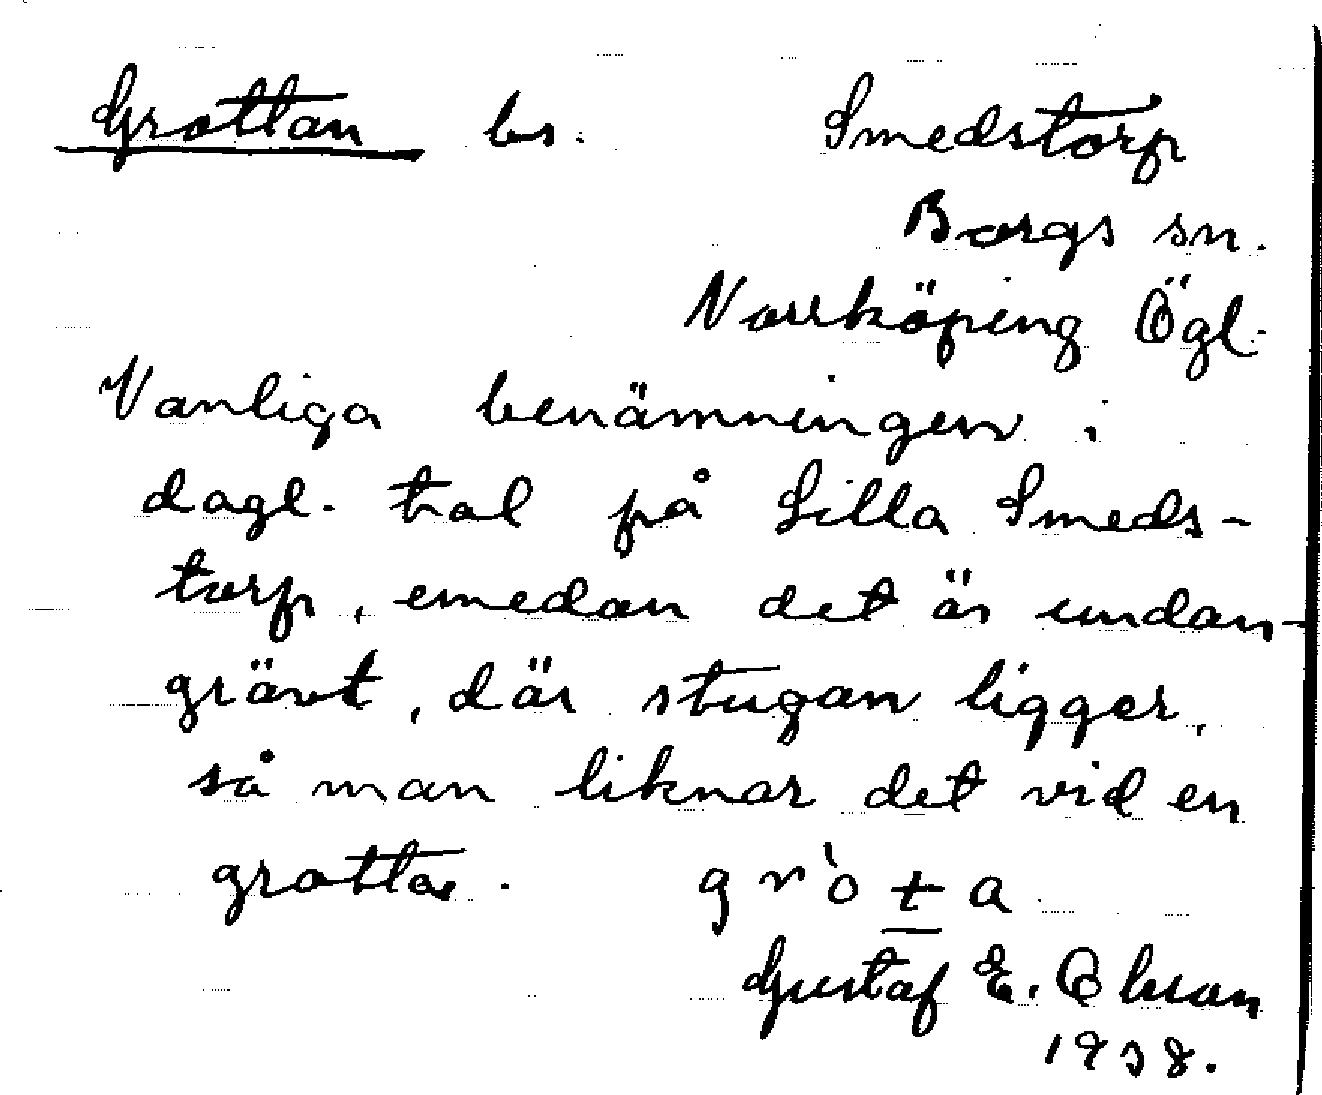 Grottan bs. Smedstorp
Borgs sn.
Norrköping Ögl.
Vanliga benämningen i
dagl. tal på Lilla Smeds-
torp, emedan det är undan-
grävt, där stugan ligger,
så man liknar det vid en
grotta. grò t a
Gustaf E. Olsson
1938.